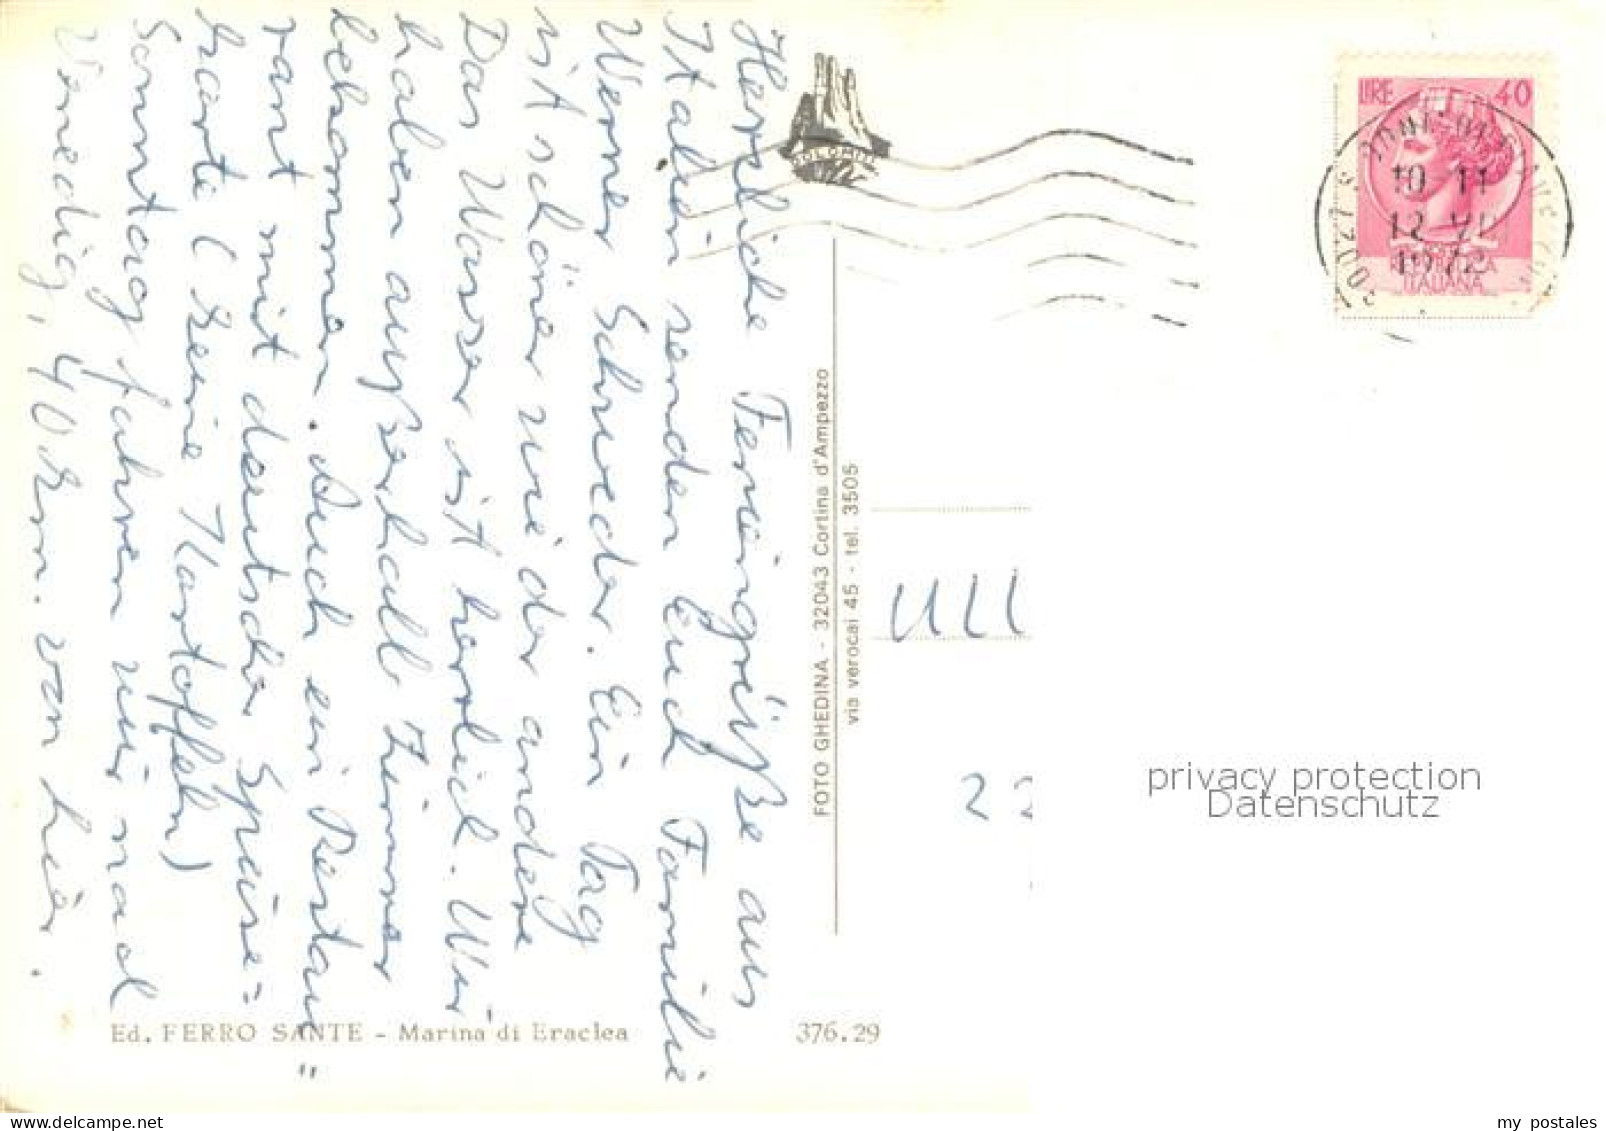 Herzliche Feriengrüße aus
Italien senden Euch Familie
Werner Schweder. Ein Tag
ist schöner wie der andere
Das Wasser ist herrlich. Wir
haben außerhalb Zimmer
bekommen. Auch ein Restau"
rant mit deutscher Speise=
karte (keine Kartoffeln)
Sonntag fahren wir nach
Venedig, 40 km. von hier.
Ed. FERRO SANTE - Marina di Eraclea
376.29
FOTO GHEDINA - 32043 Cortina d'Ampezzo
via verocai 45 - tel. 3505
DOLOMITI
LIRE 40
REPUBBLICA
ITALIANA
30027 S. DONA' DI PIAVE
10-11
12 VII
1972
22
privacy protection
Datenschutz
Ansichtskarten-center.de
my postales